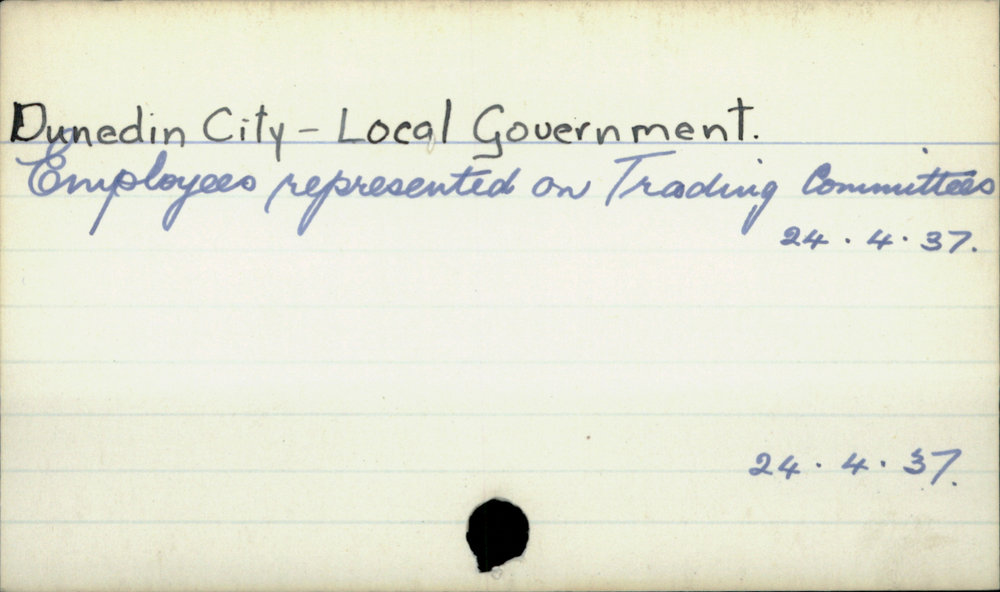 Dunedin City - Local Government.
Employees represented on Trading Committees
24 . 4 . 37.
24 . 4 . 37.